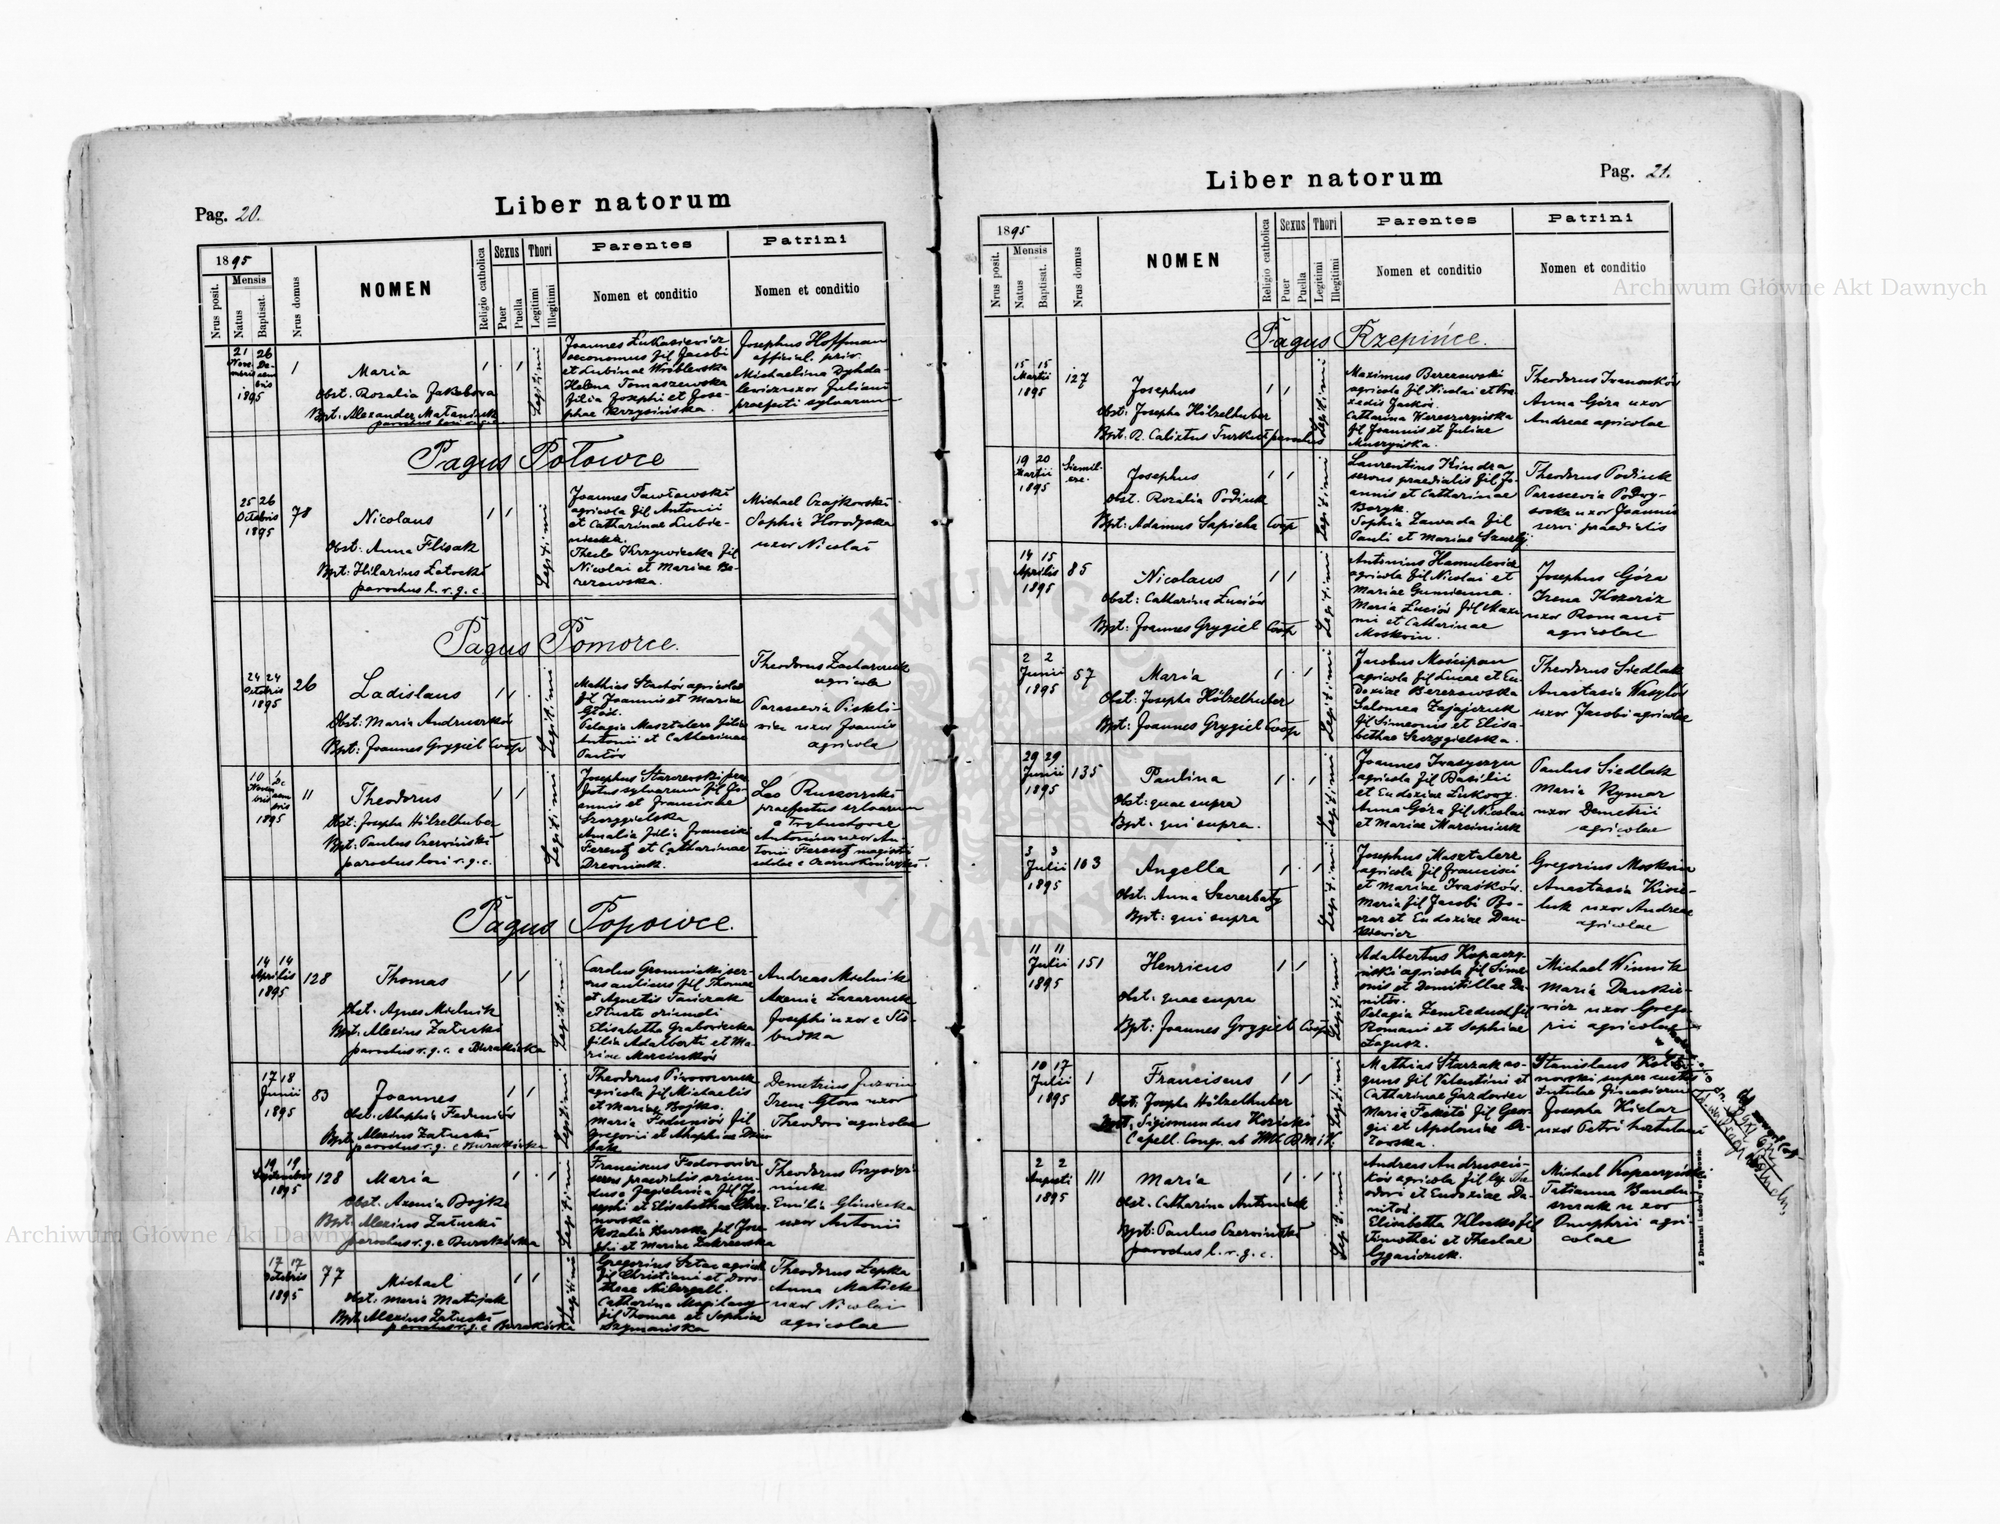 Pag. 20.
Liber natorum
1895
Mensis
Nrus posit.
Natus
Baptisat.
Nrus domus
NOMEN
Religio catholica
Sexus
Puer
Puella
Thori
Legitimi
Illegitimi
Parentes
Nomen et conditio
Patrini
Nomen et conditio
21 26
1895
1
Maria
Obst. Rozalia Jakubowa
Bpt: Alexander
Legitimi
Joannes Łukasiewicz
oeconomus fil Jacobi
et Lubinae Wróblewska
Helena Tomaszewska
filia Josephi et Jose-
phae
Josephus Hoffman
official. priv.
Michaelina Dyhda-
lewicz uxor Juliani
praefecti sylvarum
Pagus Potowce
25 26
Octobris
1895
78
Nicolaus
Obst: Anna Flisak
Bpt: Hilarius Łotocki
parochus l. r. g. c.
Legitimi
Joannes Pawłowski
agricola fil Antonii
et Catharinae Lubie-
niecka.
Thecla Krzywiecka fil
Nicolai et Mariae Be-
rezowska.
Michael Czajkowski
Sophia Horodyska
uxor Nicolai
Pagus Pomorce.
24 24
Octobris
1895
26
Ladislaus
Obst: Maria Andruszków
Bpt: Joannes Grygiel Coop
Legitimi
Mathias Stachów agricola
fil Joannis et Mariae
Pelagia Masztalerz filia
Antonii et Catharinae
Theodorus Zacharczuk
agricola
Parascevia
uxor Joannis
agricola
10
1895
11
Theodorus
Obst: Josepha Hölzelhuber
Bpt: Paulus Czerwiński
parochus loci r. g. c.
Legitimi
Josephus Starzewski prae-
fectus sylvarum fil Jo-
annis et Franciscae
Szczygielska
Amalia filia Francisci
Ferentz et Catharinae
Drewniak.
Leo
praefectus sylvarum
e Trybuchowce
Antonina uxor An-
tonii Ferentz magistri
Pagus Popowce.
14 14
Aprilis
1895
128
Thomas
Obst. Agnes Mielnik
Bpt. Alexius Załucki
parochus r. g. c. e Burakówka
Legitimi
Carolus
fil Thomae
et Agnetis
Elisabetha Grabowiecka
filia Adalberti et Ma-
riae Marcinków
Andreas Mielnik
Axenia Lazarczuk
Josephi uxor e Sło-
budka
17 18
Junii
1895
83
Joannes
Bpt. Alexius Załucki
parochus r. g. c. e Burakówka
Legitimi
Theodorus
agricola fil Michaelis
et Mariae Bojko.
Maria Feduniów fil
Gregorii et
Demetrius Juzwin
Irena Głowa uxor
Theodori agricolae
19 19
Septembris
1895
128
Maria
Obst. Axenia Bojko
Bpt: Alexius Załucki
parochus r. g. c. Burakówka
Legitimi
Franciscus Fedorowicz
servus praedialis
e Jagielnica fil Jo-
sephi et Elisabethae
Rozalia Burska fil Jose-
phi et Mariae Zakrzewska
Theodorus
Emilia Glinicka
uxor Antonii
17 17
Octobris
1895
77
Michael
Obst: Maria Matijak
Bpt. Alexius Załucki
parochus r. g. c. Burakówka
Legitimi
Gregorius Sztur agricola
fil Christiani et Doro-
theae
Catharina
fil Thomae et Sophiae
Szymańska
Theodorus Łepka
Anna
uxor Nicolai
agricolae
Liber natorum
Pag. 21.
1895
Mensis
Nrus posit.
Natus
Baptisat.
Nrus domus
NOMEN
Religio catholica
Sexus
Puer
Puella
Thori
Legitimi
Illegitimi
Parentes
Nomen et conditio
Patrini
Nomen et conditio
Pagus Rzepińce.
15 15
Martii
1895
127
Josephus
Obst: Josepha Hölzelhuber
Bpt. R. Calixtus Turkut parochus
Legitimi
Maximus Berezowski
agricola fil Nicolai et Pra-
xedis Jacków.
Catharina
fil Joannis et Juliae
Muszyńska.
Theodorus Iwanków
Anna Góra uxor
Andreae agricolae
19 20
Martii
1895
Josephus
Obst. Rozalia Podiuk
Bpt: Adamus Sapieha Coop
Legitimi
Laurentius Kindra
servus praedialis fil Jo-
annis et Catharinae
Sophia Zawada fil
Pauli et Mariae
Theodorus Podiuk
Parascevia Podwy-
socka uxor Joannis
servi praedialis
14 15
Aprilis
1895
85
Nicolaus
Obst: Catharina Łuciów
Bpt: Joannes Grygiel Coop
Legitimi
Antonius Hamulewicz
agricola fil Nicolai et
Mariae Gumienna.
Maria Łuciów fil Maxi-
mi et Catharinae
Moskwin.
Josephus Góra
Irena
uxor Romani
agricolae
2 2
Junii
1895
57
Maria
Obst: Josepha Hölzelhuber
Bpt: Joannes Grygiel Coop
Legitimi
Jacobus Mościpan
agricola fil Lucae et Eu-
doxiae Berezowska
Salomea Zajajczuk
fil Simeonis et Elisa-
bethae Szczygielska.
Theodorus Siedlak
Anastasia Wasylów
uxor Jacobi agricolae
29 29
Junii
1895
135
Paulina
Obst: quae supra
Bpt: qui supra.
Legitimi
Joannes Iwasyszyn
agricola fil Basilii
et Eudoxiae
Anna Góra fil Nicolai
et Mariae Marciniuk
Paulus Siedlak
Maria Rymar
uxor Demetrii
agricolae
3 3
Julii
1895
103
Angella
Obst. Anna Szczerbaty
Bpt: qui supra
Legitimi
Josephus Masztalerz
agricola fil Francisci
et Mariae Iwaśków.
Maria fil Jacobi
et Eudoxiae Dan-
kiewicz
Gregorius Moskwin
Anastasia Kise-
luk uxor Andreae
agricolae
11 11
Julii
1895
151
Henricus
Obst: quae supra
Bpt: Joannes Grygiel Coop
Legitimi
Adalbertus Kopaczy-
ński agricola fil Sime-
onis et Domitillae Da-
nitów.
Pelagia
Romani et Sophiae
Łagusz.
Michael Winnik
Maria Dankie-
wicz uxor Grego-
rii agricolae
10 17
Julii
1895
1
Franciscus
Obst: Josepha Hölzelhuber
Sigismundus
Capell. Congr. ab
Legitimi
Mathias Starzak
fil Valentini et
Catharinae Gazdowicz
Maria Fekete fil Geor-
gii et Apoloniae
Stanislaus
Josepha Kielar
uxor Petri hortulani
2 2
Augusti
1895
111
Maria
Obst. Catharina Antoniuk
Bpt: Paulus Czerwiński
parochus l. r. g. c.
Legitimi
Andreas
agricola fil Theo-
dori et Eudoxiae Da-
nitów.
Elisabetha
Timothei et Theclae
Cyganczuk.
Michael Kopaczyński
Tatianna Bandu-
uxor
Onuphrii agri-
colae
Archiwum Główne Akt Dawnych
Archiwum Główne Akt Dawnych